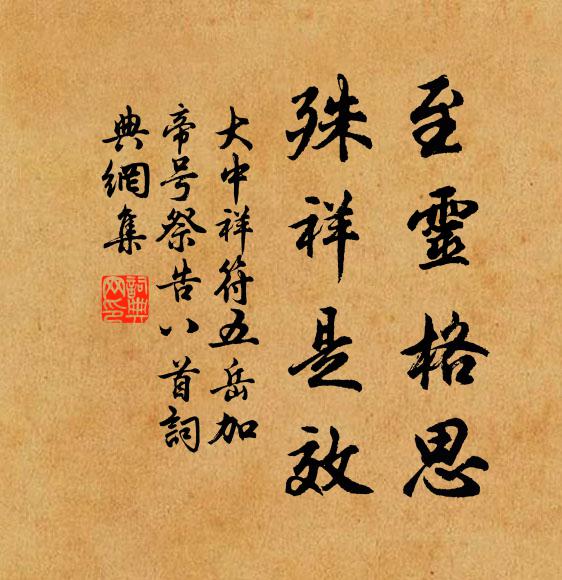 至靈格思
殊祥是效
大中祥符五岳加
帝号祭告八首詞
典網集
詞典
网印